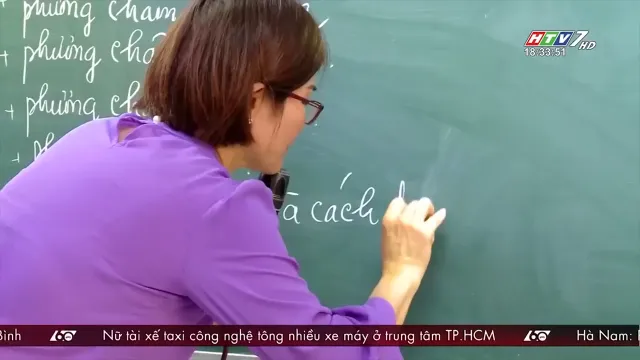 + phương châm
+ phương châ
+ phương ch
+ ph
à cách
HTV7 HD
18:33:51
Bình 60 Nữ tài xế taxi công nghệ tông nhiều xe máy ở trung tâm TP.HCM 60 Hà Nam: